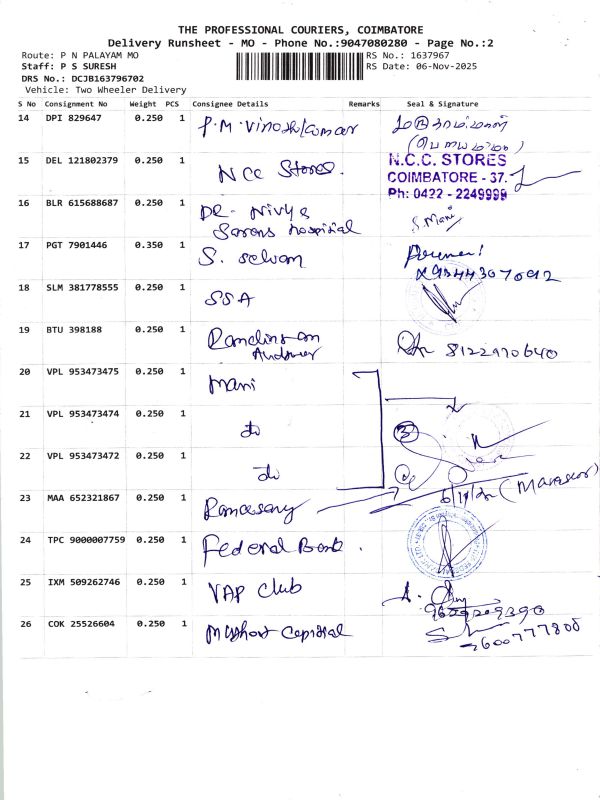 THE PROFESSIONAL COURIERS, COIMBATORE
Delivery Runsheet - MO - Phone No.:9047080280 - Page No.:2
Route: P N PALAYAM MO
RS No.: 1637967
Staff: P S SURESH
RS Date: 06-Nov-2025
DRS No.: DCJB163796702
Vehicle: Two Wheeler Delivery
S No Consignment No Weight PCS Consignee Details Remarks Seal & Signature
14 DPI 829647 0.250 1 P.M. Vinoth Kumar
15 DEL 121802379 0.250 1 NCC Stores.
N.C.C. STORES
COIMBATORE - 37.
Ph: 0422 - 2249999
16 BLR 615688687 0.250 1 DR- Nivya
Hospital S. Mani
17 PGT 7901446 0.350 1 S. Selvam
9344307092
18 SLM 381778555 0.250 1 SSA
19 BTU 398188 0.250 1 8122970640
20 VPL 953473475 0.250 1 Mani
21 VPL 953473474 0.250 1 do
3
22 VPL 953473472 0.250 1 do
23 MAA 652321867 0.250 1 Ramasamy
24 TPC 9000007759 0.250 1 Federal Bank.
25 IXM 509262746 0.250 1 VAP Club
9629209390
26 COK 25526604 0.250 1 Capital